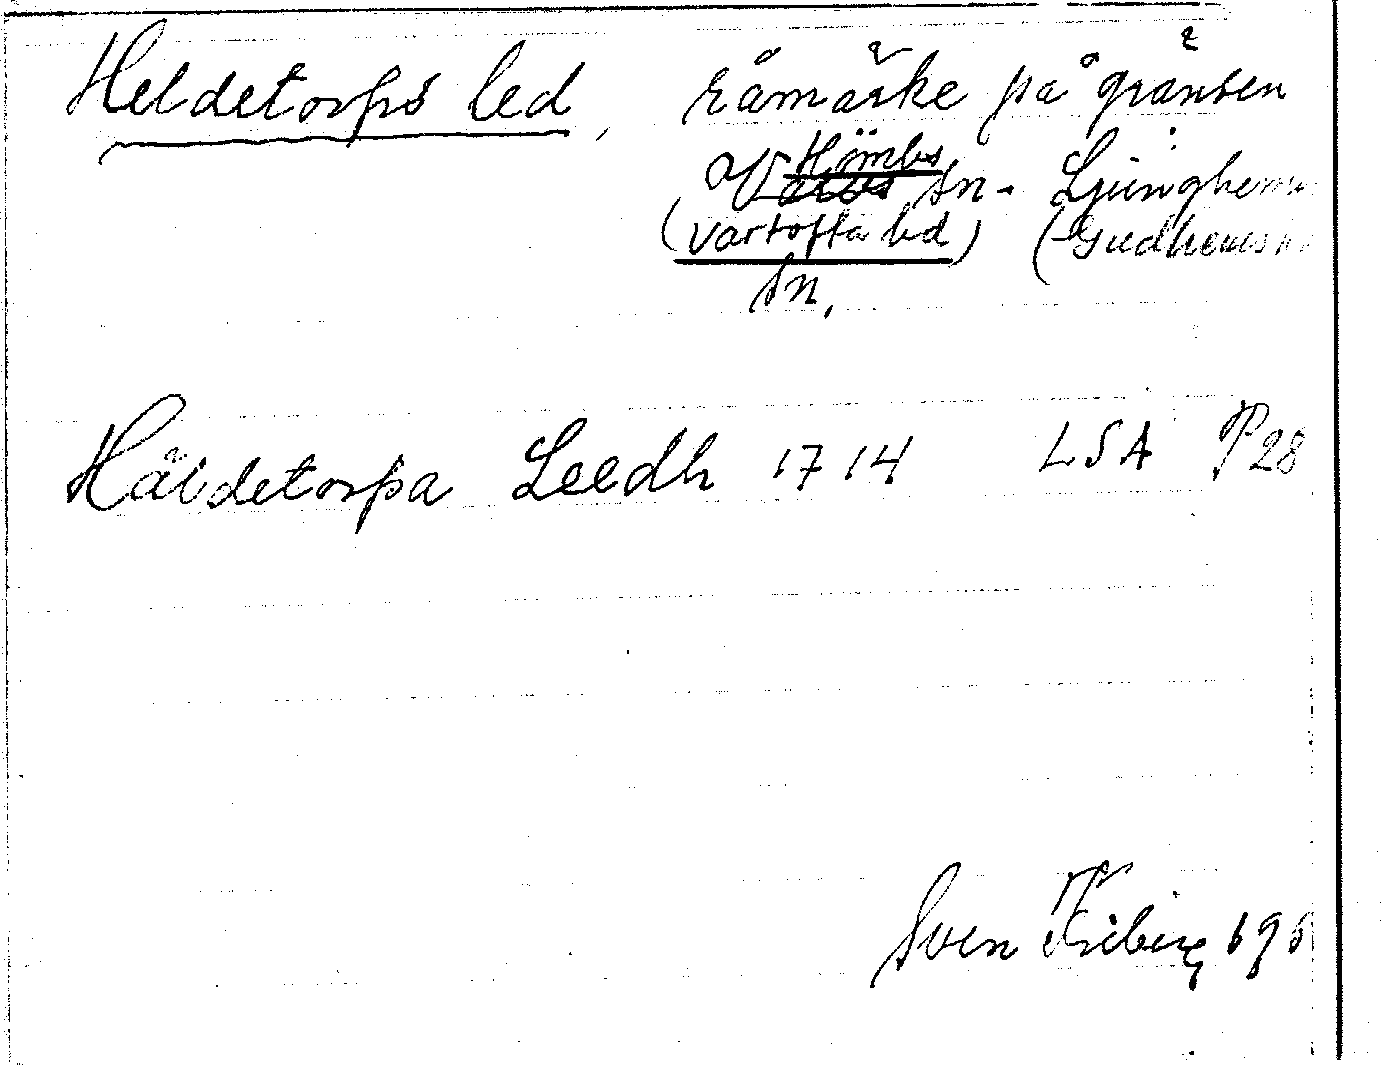 Heldetorps led, råmärke på gränsen
Hömbs
V sn - Ljunghems
(Vartofta hd) (Gudhems
sn,
Häldetorpa Leedh 1714 LSA P28
Sven